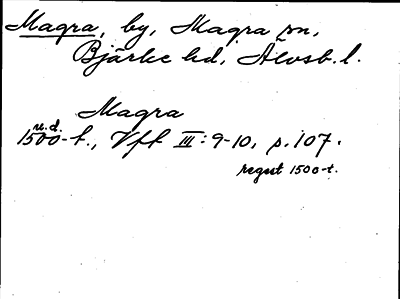 Magra, by, Magra sn,
Bjärke hd, Älvsb. l.
Magra
u.d.
1500-t., Vft III: 9-10, p. 107.
regest 1500-t.